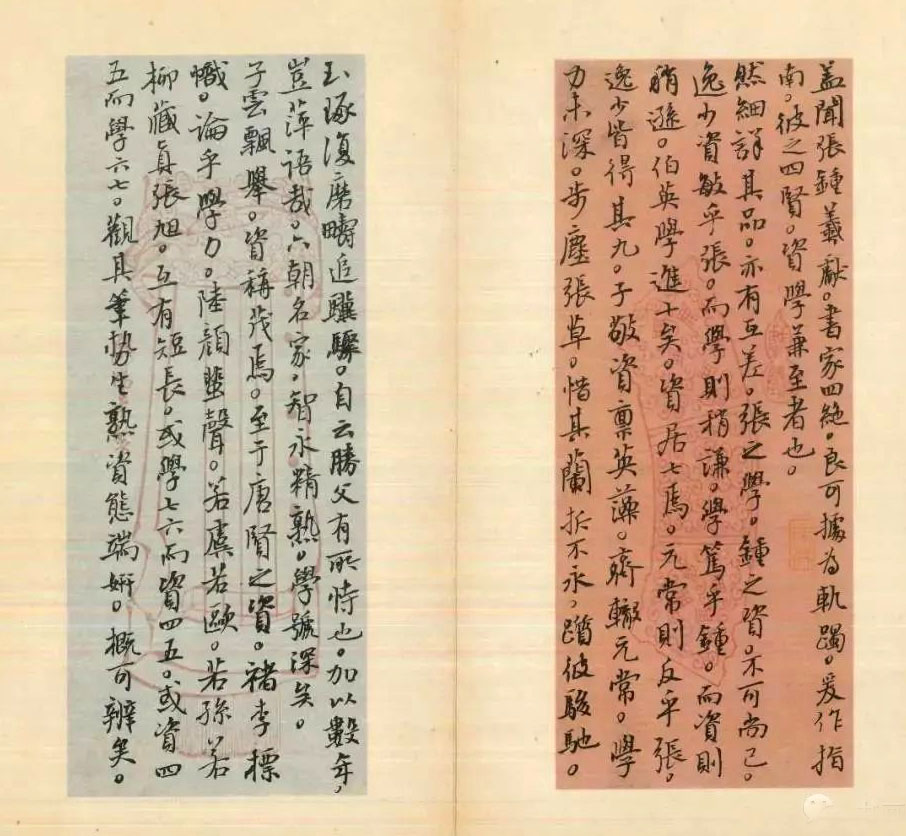 蓋聞張鍾羲獻。書家四絕。良可據為軌躅。爰作指
南。彼之四賢。資學兼至者也。
然細詳其品。亦有互差。張之學。鍾之資。不可尚已。
逸少資敏乎張。而學則稍謙。學篤乎鍾。而資則
稍遜。伯英學進十矣。資居七焉。元常則反乎張。
逸少皆得其九。子敬資稟英藻。齊轍元常。學
力未深。步塵張草。惜其蘭折不永。躓彼駿馳。
玉琢復磨疇追驥驟。自云勝父有所恃也。加以數年。
豈萍語哉。六朝名家。智永精熟。學號深矣。
子雲飄舉。資稱茂焉。至于唐賢之資。褚李標
幟。論乎學力。陸顏蜚聲。若虞若歐。若孫若
柳藏真張旭。互有短長。或學七六而資四五。或資四
五而學六七。觀其筆勢生熟資態端妍。概可辨矣。